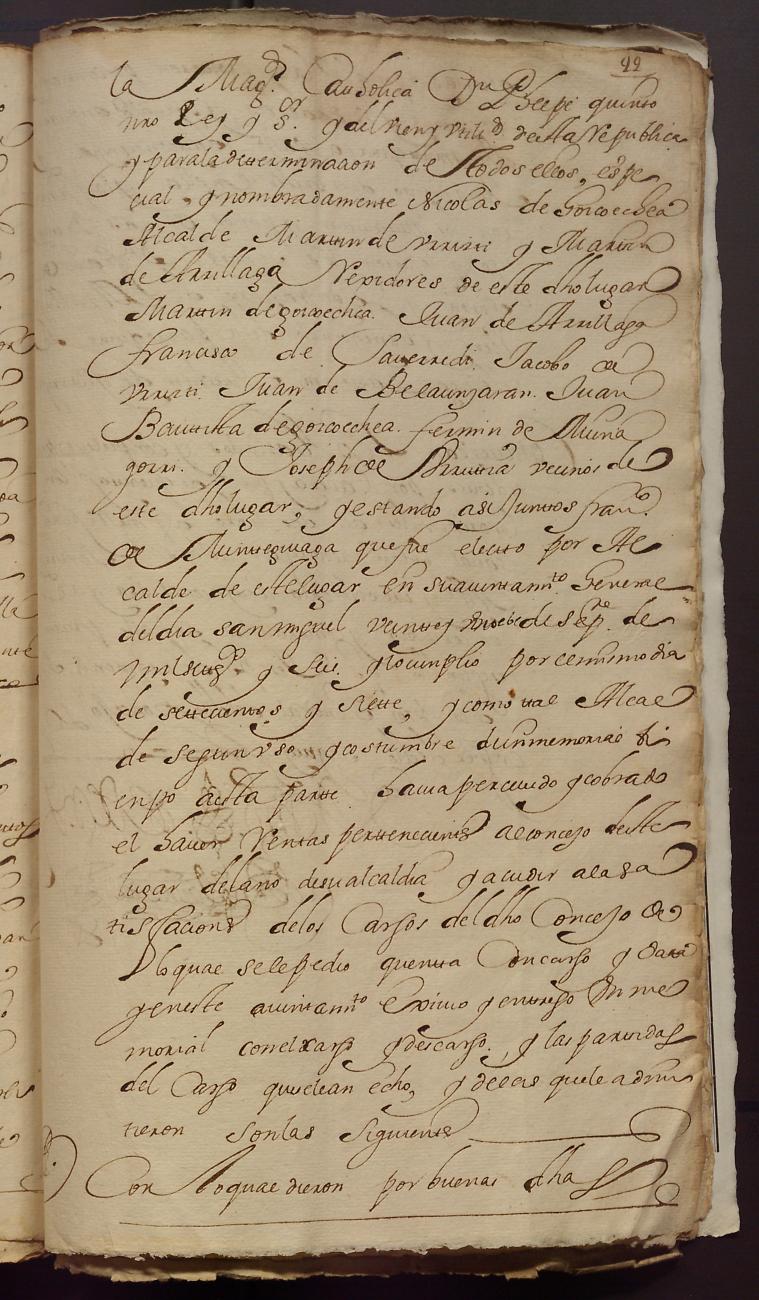 99
la Mag.d Catholica Dn Phelipe quinto
nro Rey y S.or y del vien y utili.d desta republica
y para la determinacion de todos ellos, espe
cial y nombradamente Nicolas de Goicoechea
Alcalde Martin de Urriti y Martin
de Arrillaga Rexidores de este dho lugar
Martin de goicoechea. Juan de Arrillaga
francisco de Saverredi. Jacobo de
Urriti. Juan de Belaunzaran. Juan
Bautista de goicoechea. fermin de Muna
gorri. y Joseph de vecinos de
este dho lugar, y estando asi Juntos fran.co
de Munteguiaga que fue electo por Al
calde de este lugar en su auintam.to General
del dia san miguel veinte y nuebe de sep.re de
mil setez.os y seis. y lo cumplio por el mismo dia
de settecientos y siette, y como tal Alcal
de segun uso y costumbre de inmemorial ti
enpo a esta parte havia percevido y cobrado
el haver y Rentas pertenecientes al concejo deste
lugar del año de su alcaldia y acudir a la sa
tisfacion de los Cargos del dho Concejo de
lo qual se le pedio quenta Con cargo y data
y en este auintam.to Exivio y entrego Un me
morial con el cargo y descargo, y las partidas
del Cargo que le an echo, y de las que le admi
tieron son las siguientes
Con lo qual dieron por buenas dhas